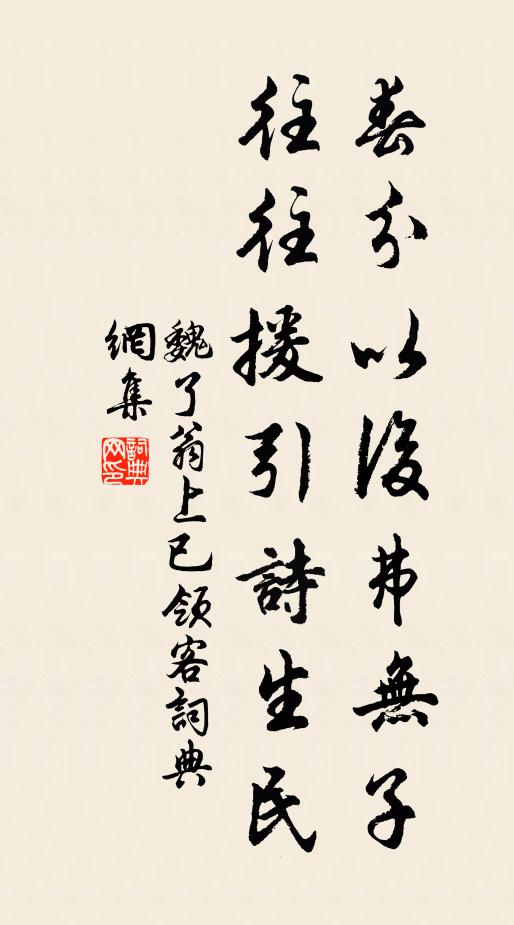 春分以後弗無子
往往援引詩生民
魏了翁上巳領客詞典
網集
詞典網印